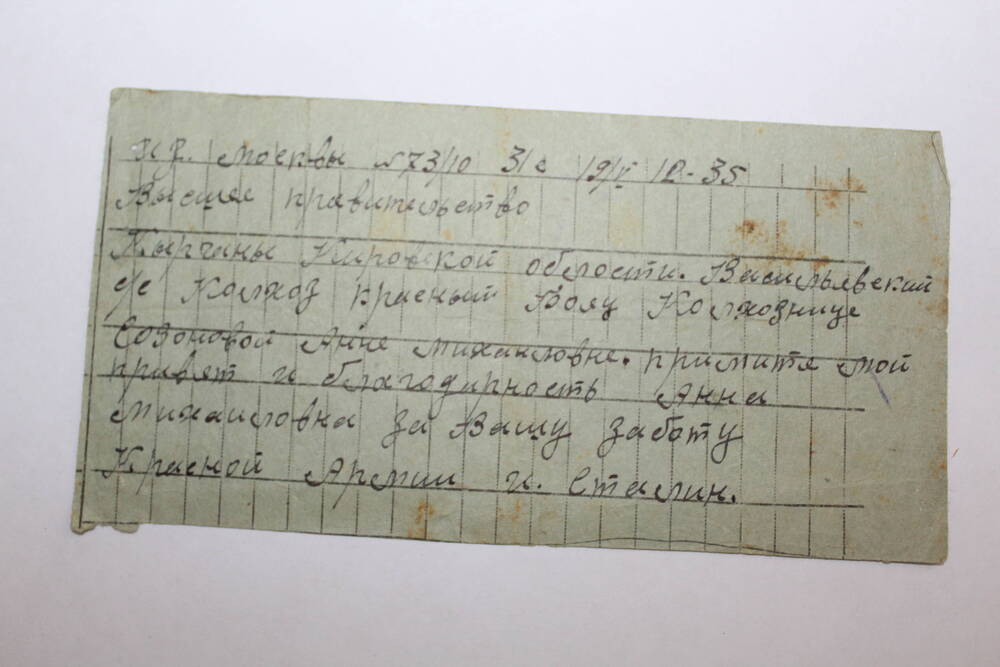 из Москвы №73/10 31с 19/V 12-35
Высшее правительство
Кырчаны Кировской области. Васильевский
с/с Колхоз красный Вояц Колхознице
Созоновой Анне Михаиловне. примите мой
привет и благодарность Анна
Михаиловна за Вашу заботу
Красной Армии и. Сталин.